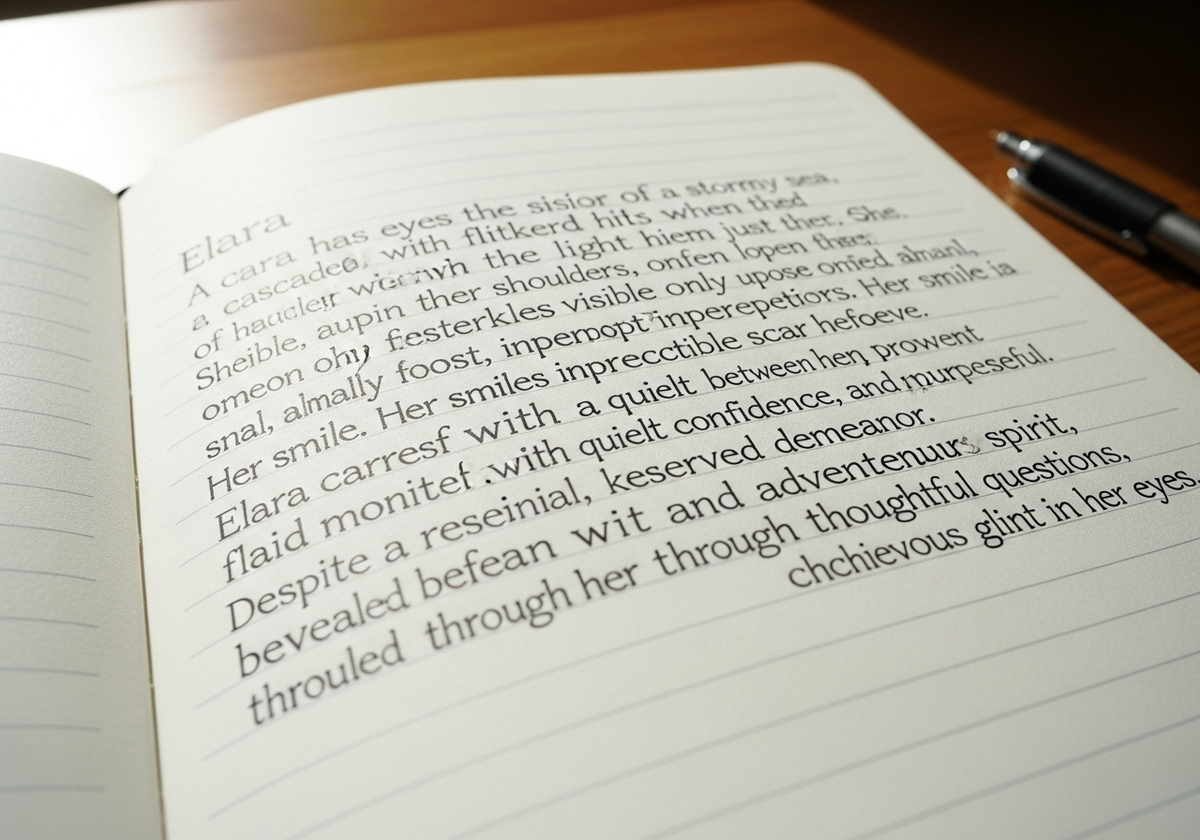 Elara
A cara has eyes the sisior of a stormy sea,
a cascadee, with flitkerd hits when thed
of the light hiem just ther. She.
Sheible, aupin ther shoulders, onfen lopen
omeon ohy festerkles visible only upose onied almanl,
snal, almally foost, inperpopt inperepetiors. Her smile ia
Her smile. Her smiles inprecctible scar hefoeve.
Elara carresf with a quielt between hen, prowent
flaid monitef .with quielt confidence, and murpeseful.
Despite a reseinial, keserved demeanor.
bevealed befean wit and adventenuurs spirit,
throuled through her through thoughtful questions,
chchievous glint in her eyes.